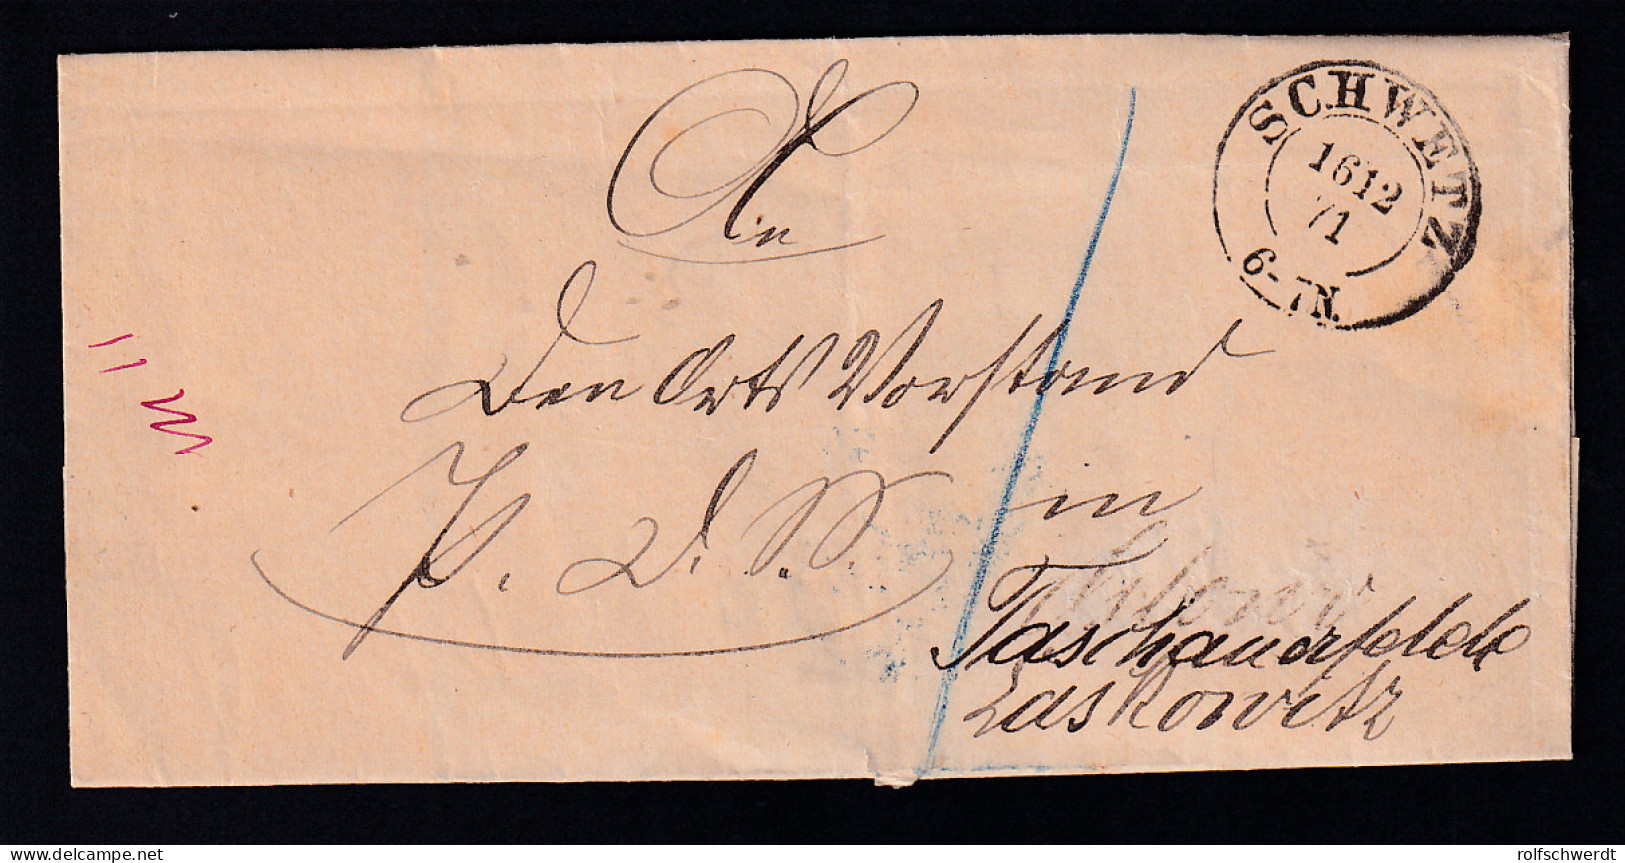 SCHWETZ
16 12
71
6-7N.
An
Den Orts Vorstand
P. d. S.
in
Taschauerfelde
Laskowitz
11
delcampe.net
rolfschwerdt